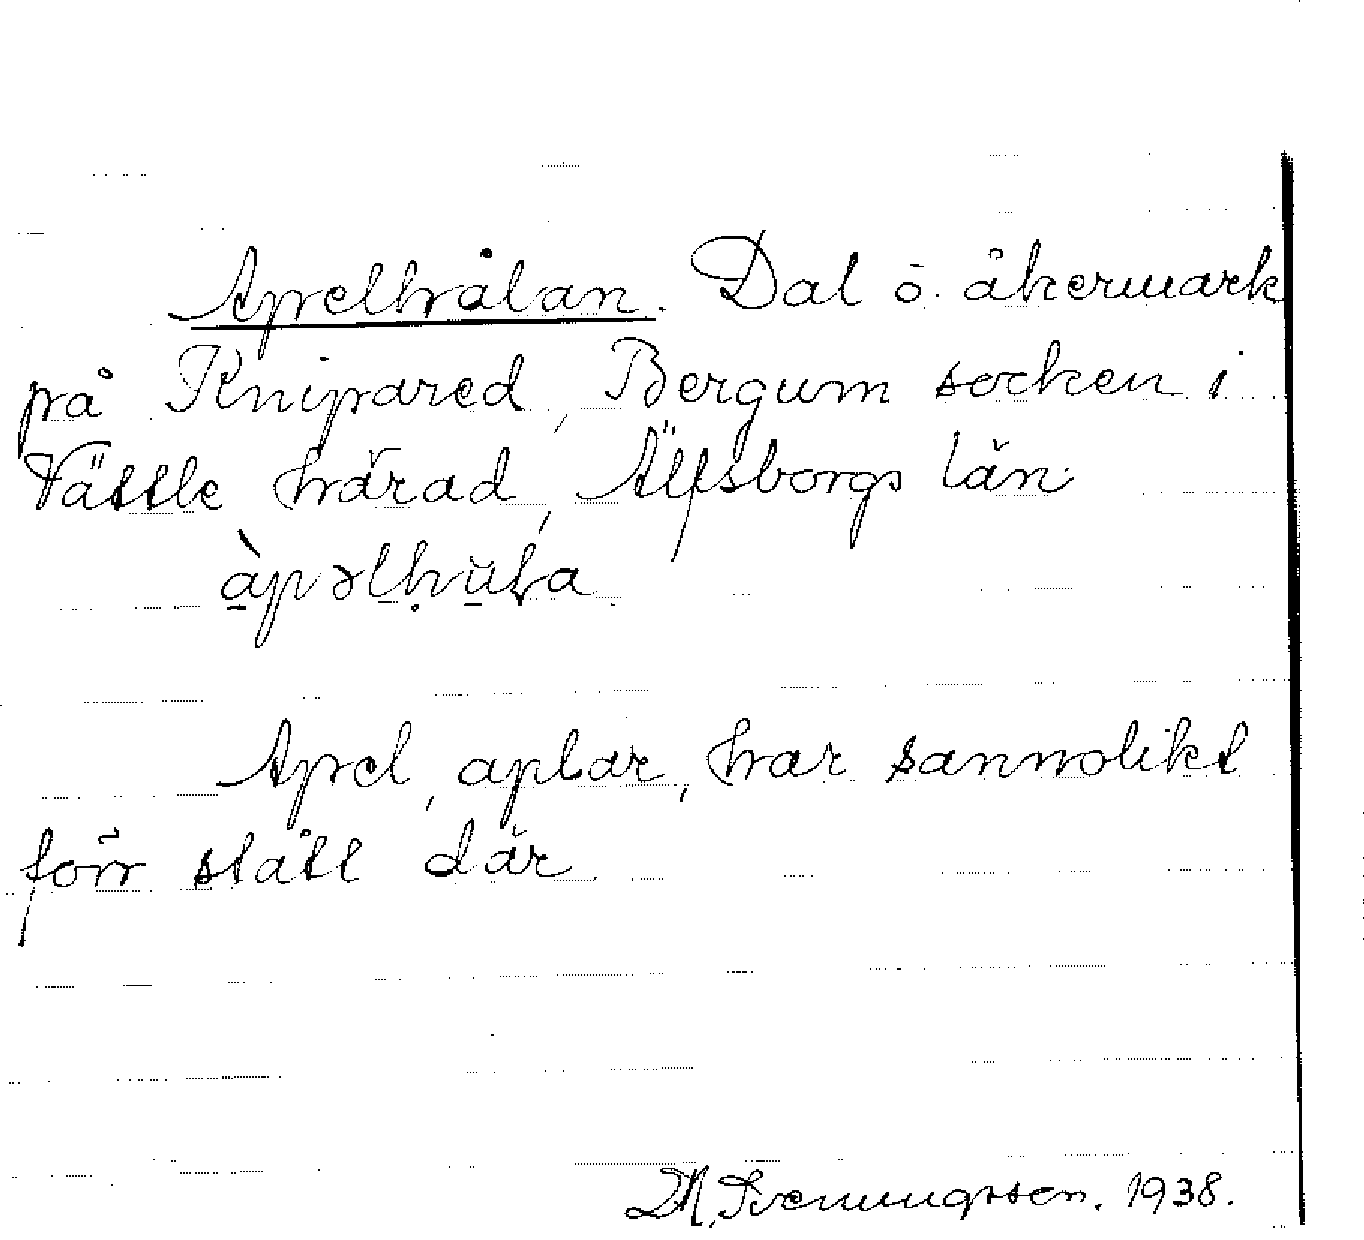 Apelhålan. Dal o. åkermark
på Knipared, Bergum socken i
Vättle härad, Älfsborgs län
àpəlhu̇ɫa
Apel, aplar, har sannolikt
förr stått där
M. Svenungsson. 1938.